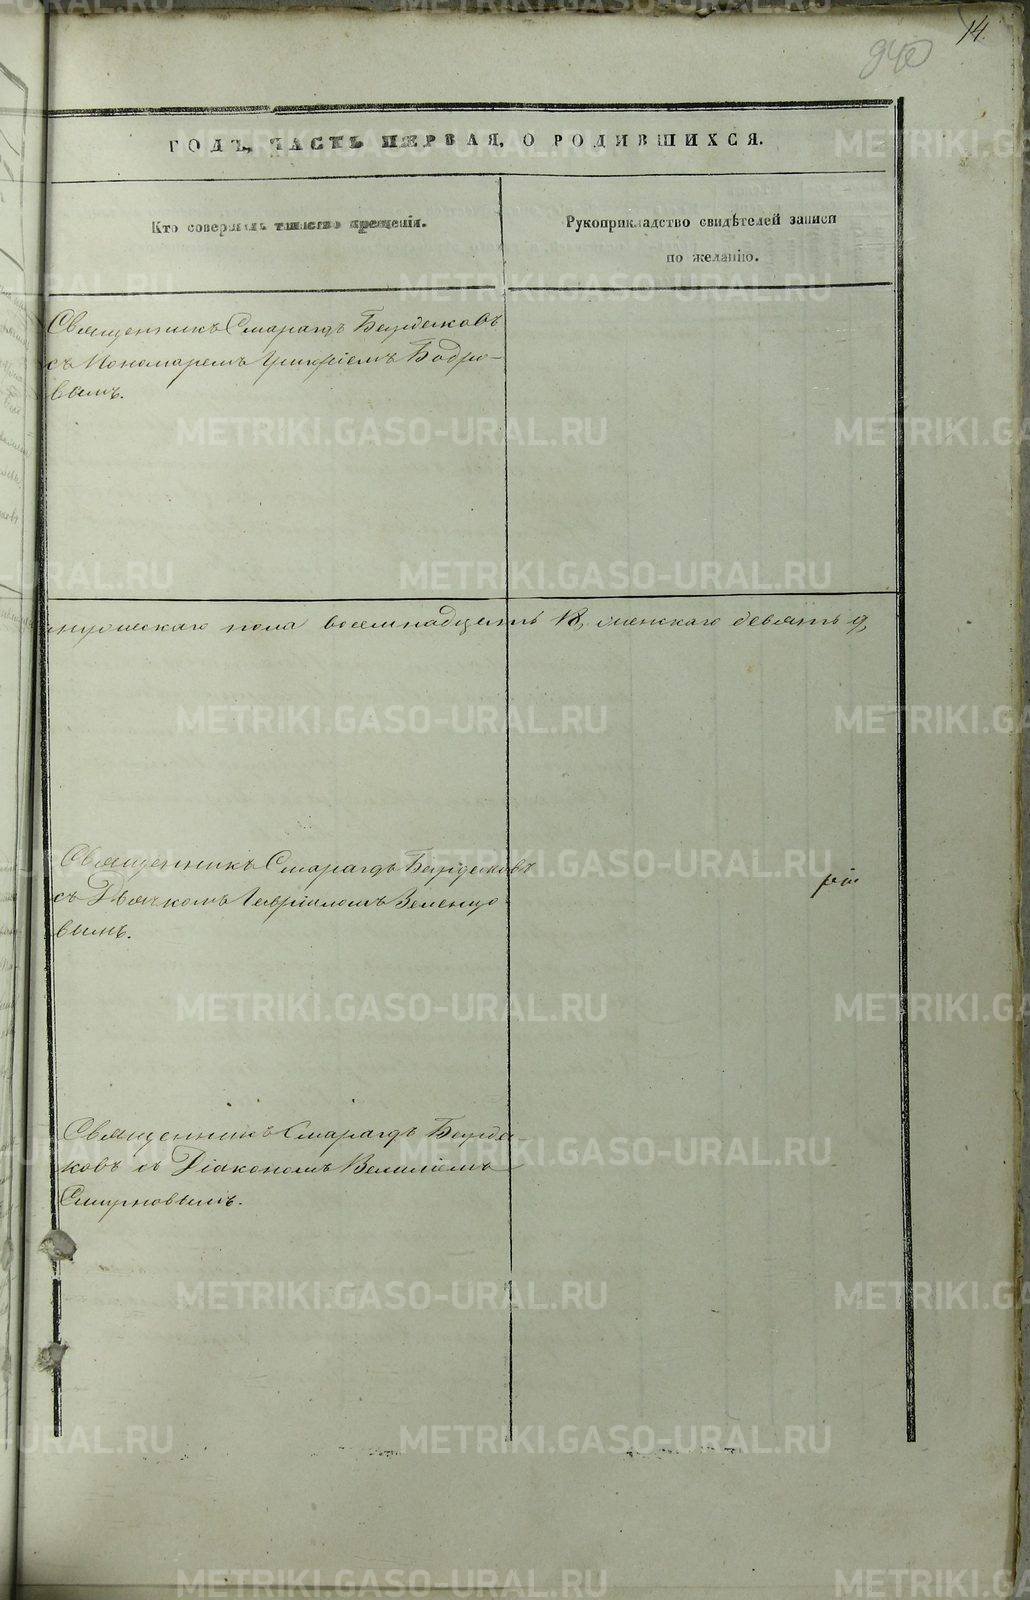 14.
940
ГОДЪ, ЧАСТЬ ПЕРВАЯ, О РОДИВШИХСЯ.
Кто совершалъ таинство крещенія.
Рукоприкладство свидѣтелей записи
по желанію.
Священникъ Смарагдъ Бурдаковъ
съ Пономаремъ Григоріемъ Бодро-
вымъ.
мужескаго пола восемнадцать 18, женскаго девять 9,
Священникъ Смарагдъ Бурдаковъ
съ Дьячкомъ Гавріиломъ Зеленцо-
вымъ.
Священникъ Смарагдъ Бурда-
ковъ съ Діакономъ Василіемъ
Смирновымъ.
METRIKI.GASO-URAL.RU